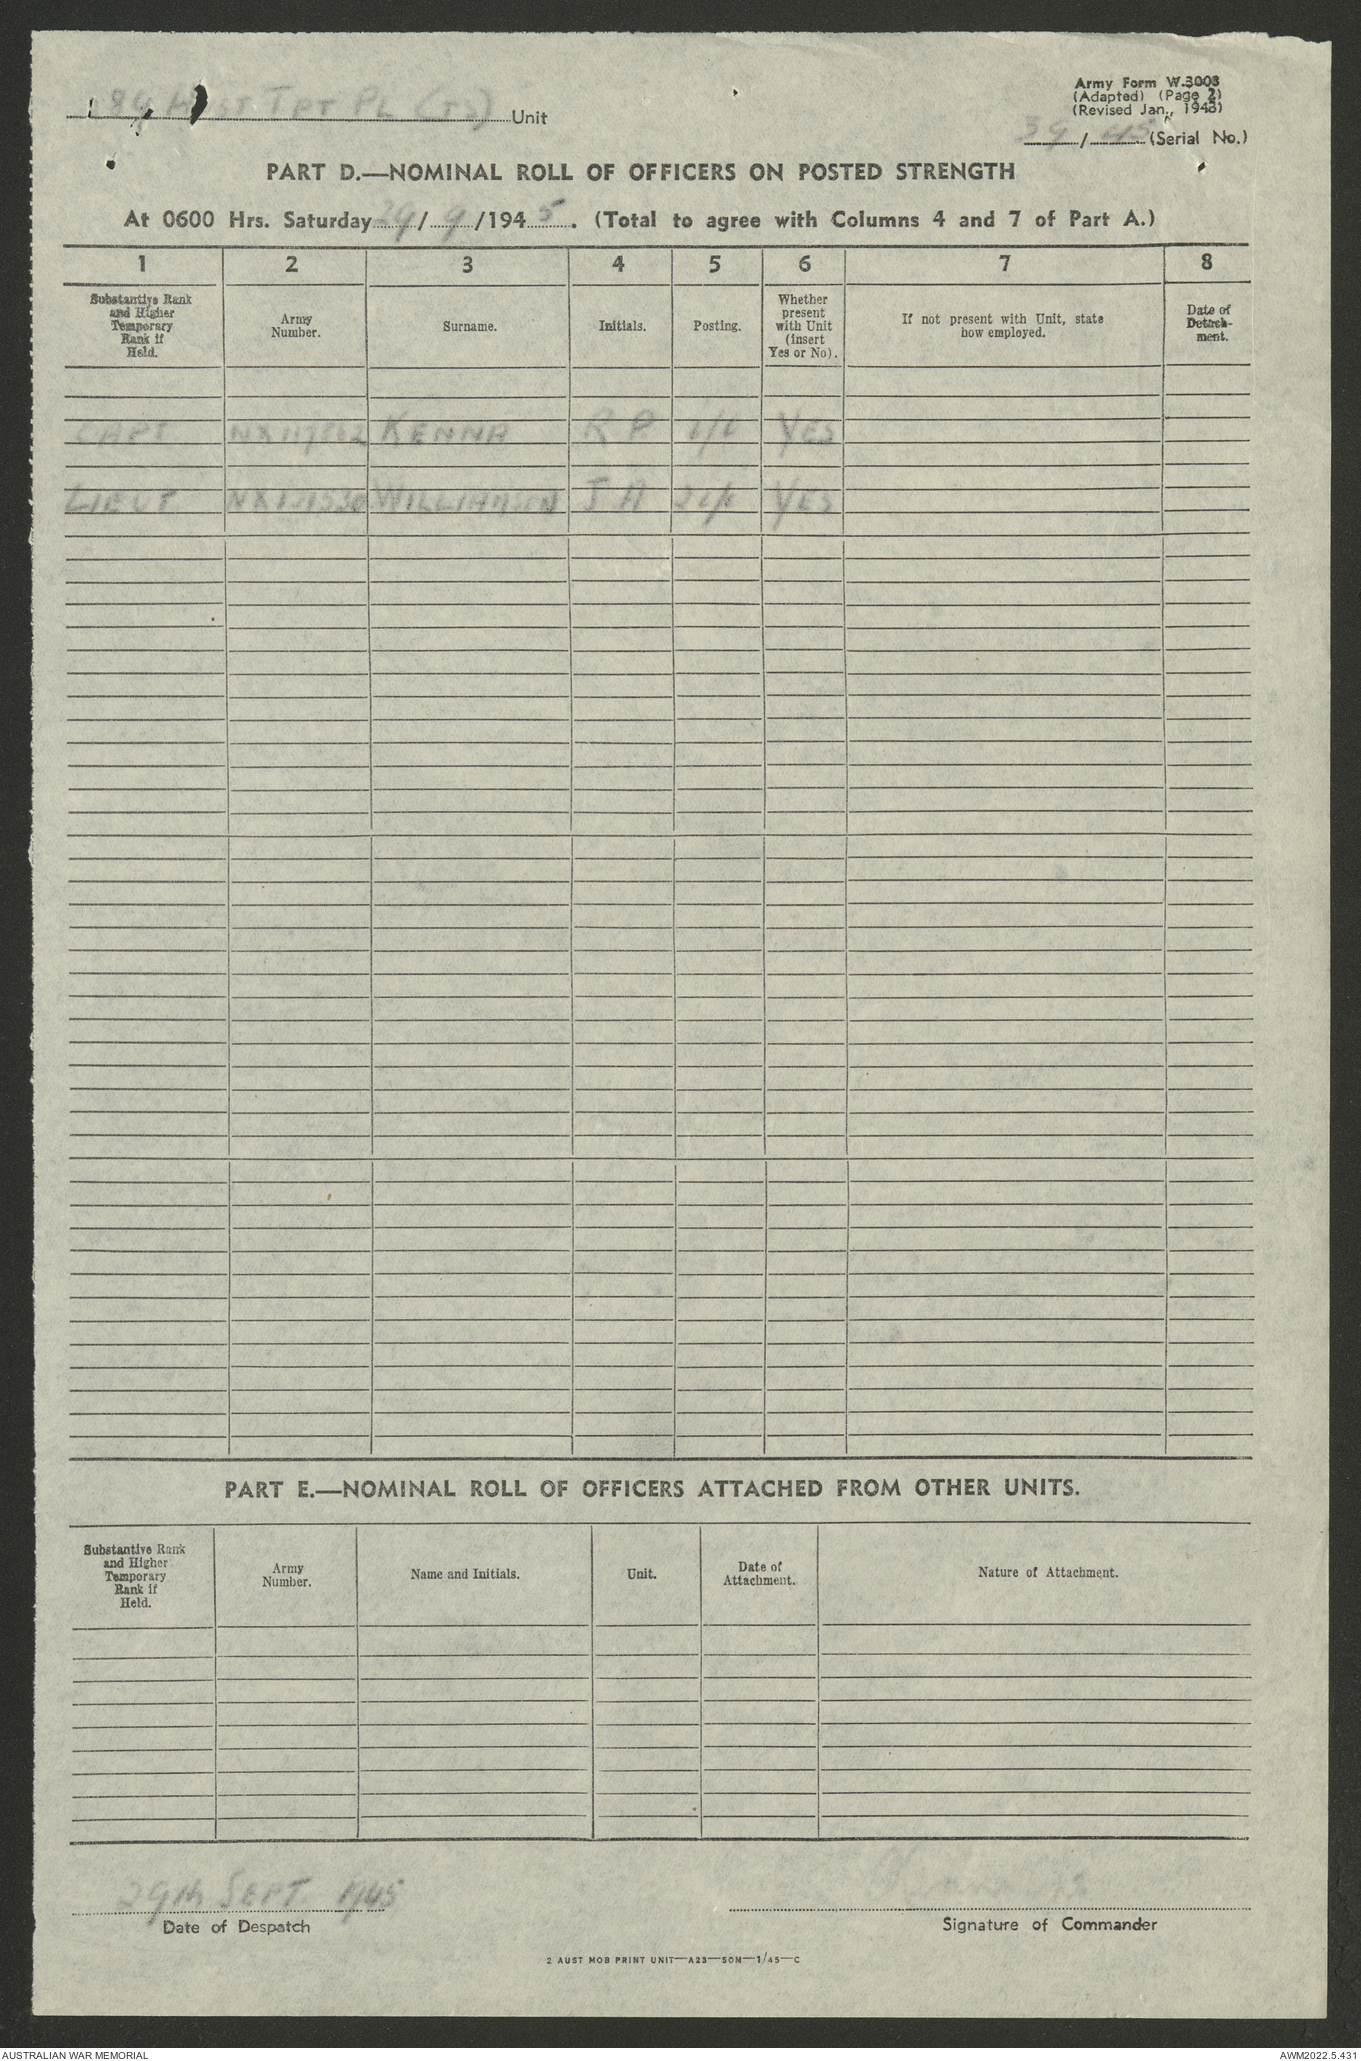 Army Form W.3003
(Adapted) (Page 2)
(Revised Jan., 1943)
Aust Tpt Pl Unit
39/45 (Serial No.)
PART D.—NOMINAL ROLL OF OFFICERS ON POSTED STRENGTH
At 0600 Hrs. Saturday 29/9/1945. (Total to agree with Columns 4 and 7 of Part A.)
1 2 3 4 5 6 7 8
Substantive Rank and Higher Temporary Rank if Held. Army Number. Surname. Initials. Posting. Whether present with Unit (insert Yes or No). If not present with Unit, state how employed. Date of Detach-ment.
CAPT KENNA R P YES
LIEUT WILLIAMSON J A YES
PART E.—NOMINAL ROLL OF OFFICERS ATTACHED FROM OTHER UNITS.
Substantive Rank and Higher Temporary Rank if Held. Army Number. Name and Initials. Unit. Date of Attachment. Nature of Attachment.
29th SEPT. 1945
Date of Despatch Signature of Commander
2 AUST MOB PRINT UNIT—A23—50M—1/45—C
AUSTRALIAN WAR MEMORIAL AWM2022.5.431